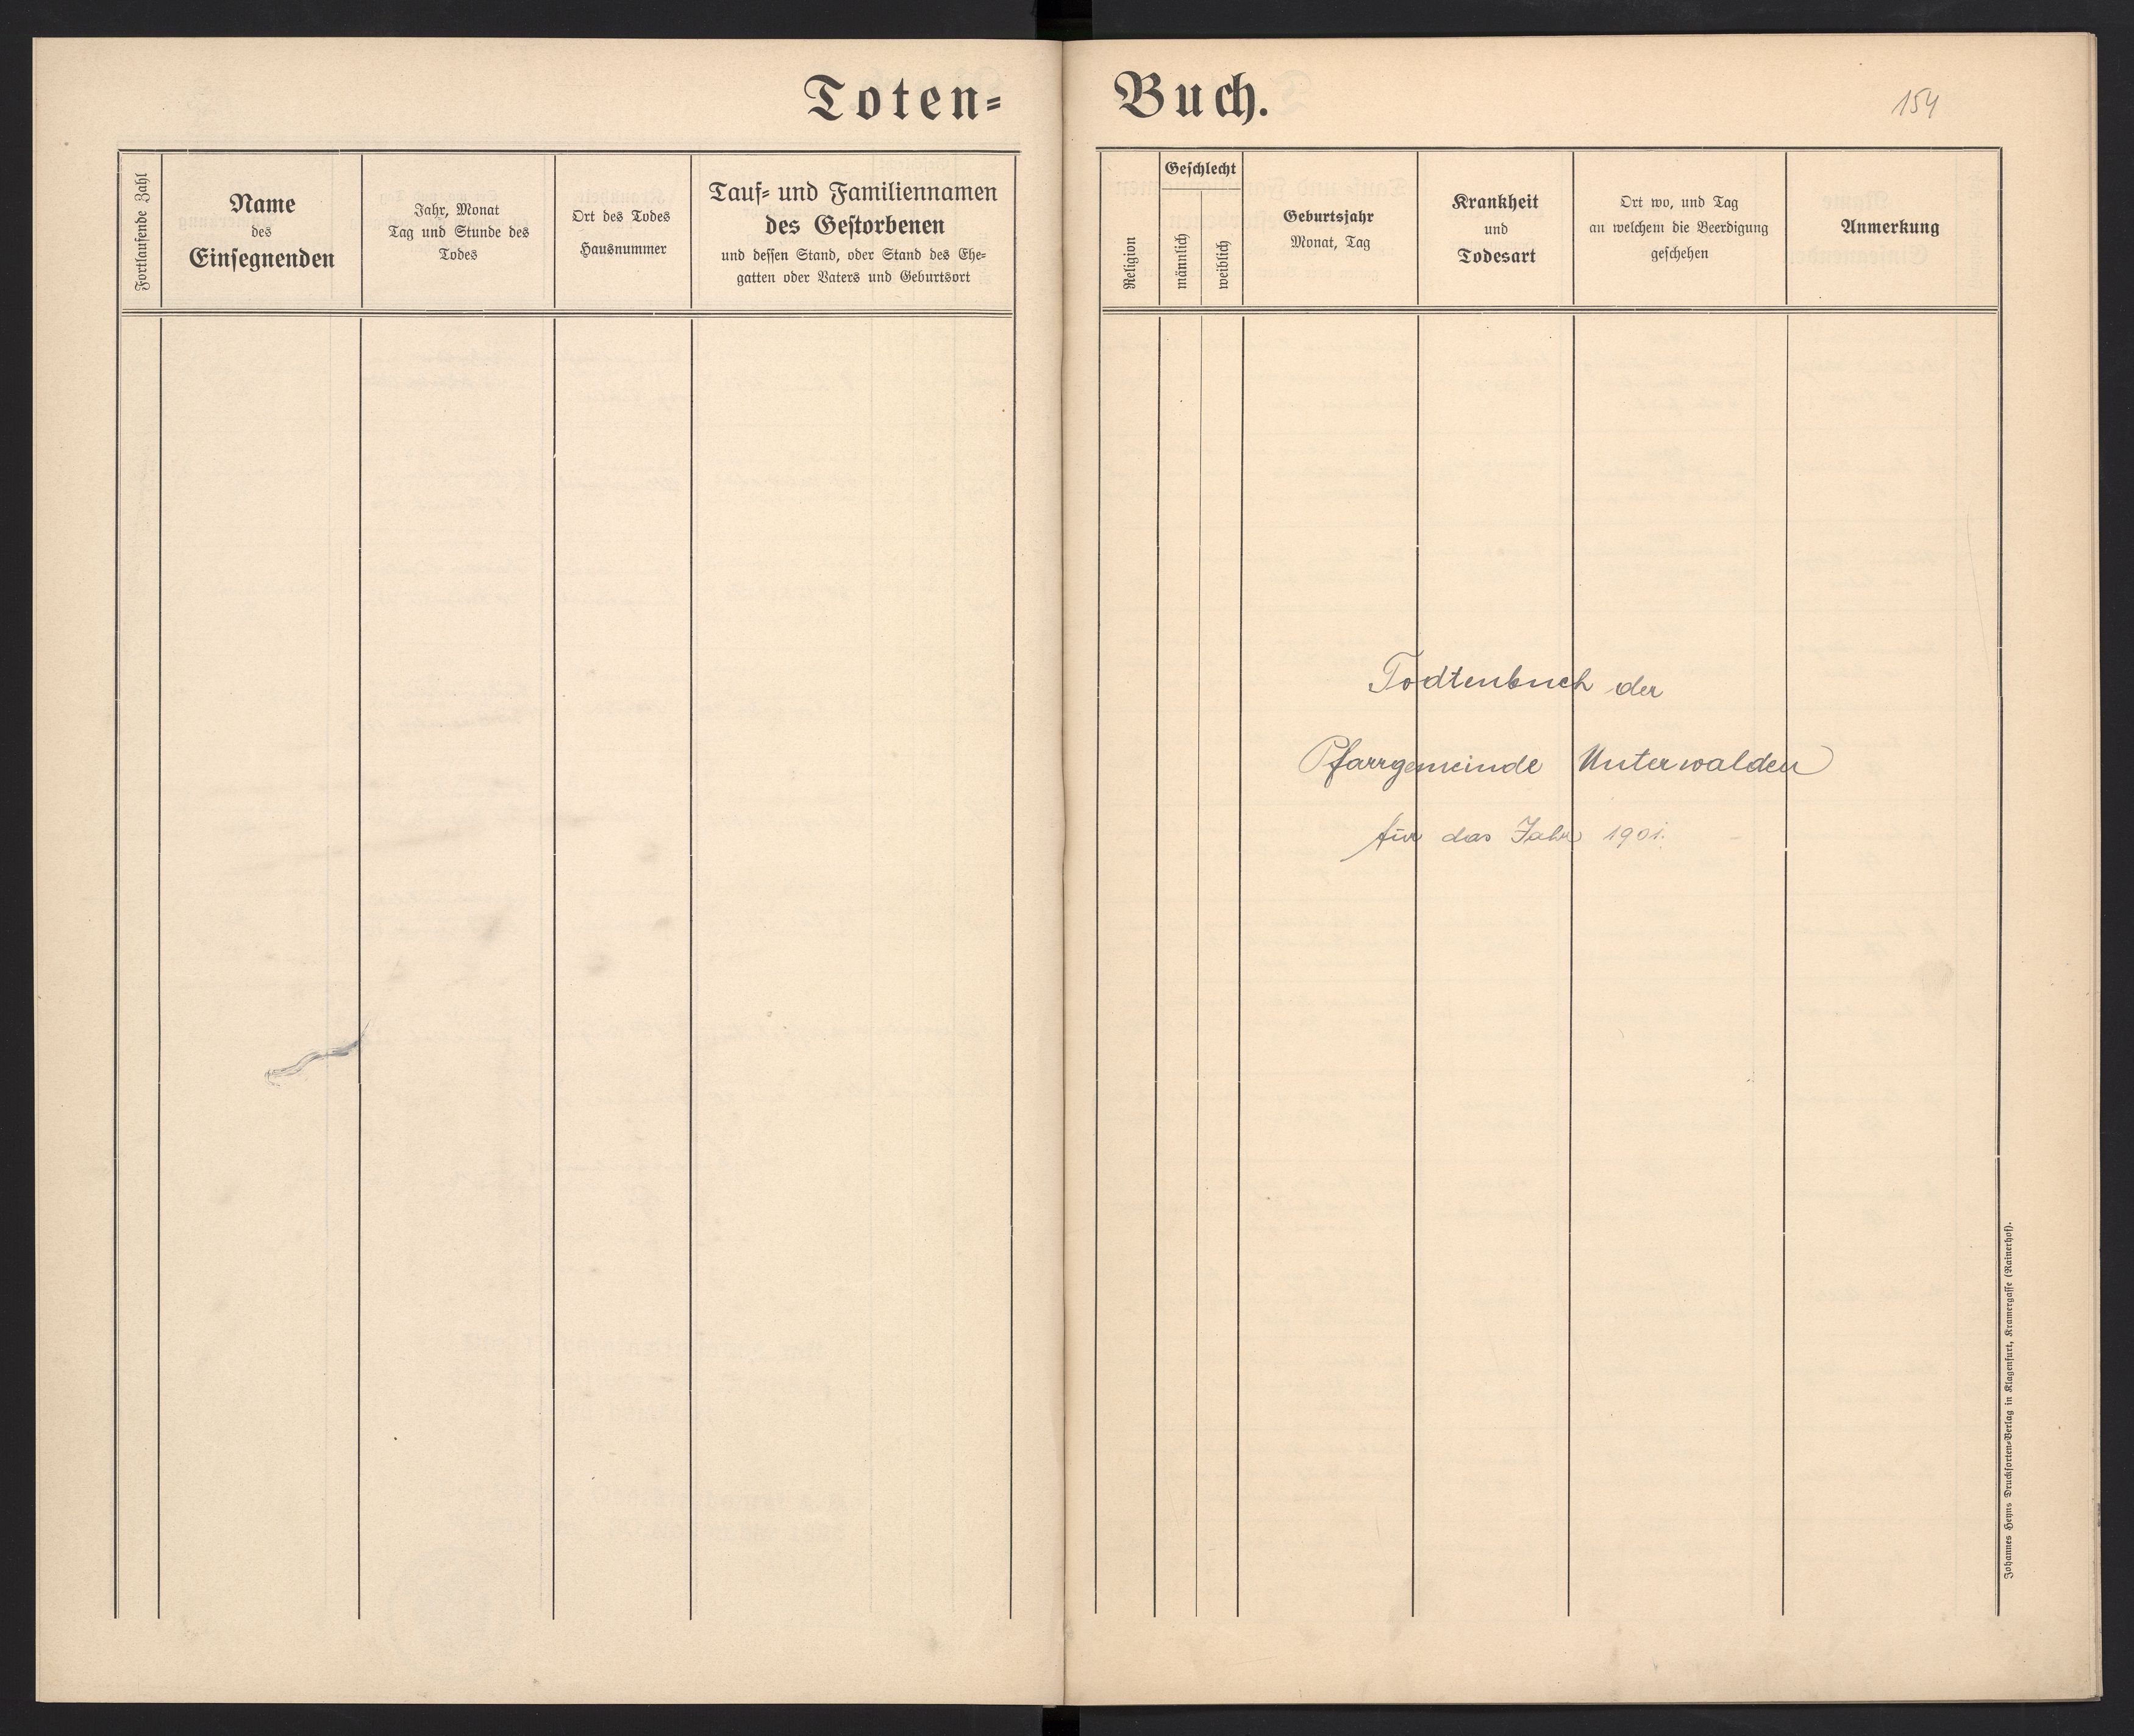 Toten=
Fortlaufende Zahl
Name
des
Einsegnenden
Jahr, Monat
Tag und Stunde des
Todes
Ort des Todes
Hausnummer
Tauf= und Familiennamen
des Gestorbenen
und dessen Stand, oder Stand des Ehe=
gatten oder Vaters und Geburtsort
Buch.
154
Religion
Geschlecht
männlich
weiblich
Geburtsjahr
Monat, Tag
Krankheit
und
Todesart
Ort wo, und Tag
an welchem die Beerdigung
geschehen
Anmerkung
Todtenbuch der
Pfarrgemeinde Unterwalden
für das Jahr 1901.
Johannes Heyns Drucksorten=Verlag in Klagenfurt, Kramergasse (Rainerhof).